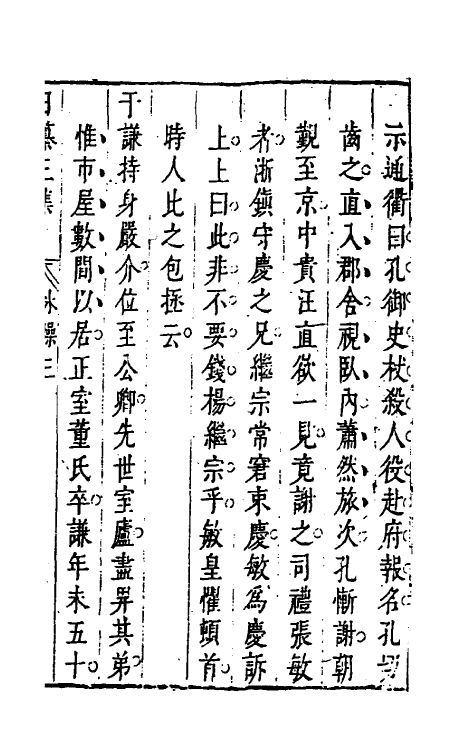 示通衢曰孔御史杖殺人役赴府報名孔切
齒之直入郡舍視臥內蕭然旅次孔慚謝朝
覲至京中貴汪直欲一見竟謝之司禮張敏
者浙鎮守慶之兄繼宗常窘束慶敏為慶訴
上上曰此非不要錢楊繼宗乎敏皇懼頓首
時人比之包拯云
于謙持身嚴介位至公卿先世室廬盡畀其弟
惟市屋數間以居正室董氏卒謙年未五十
三集 操三